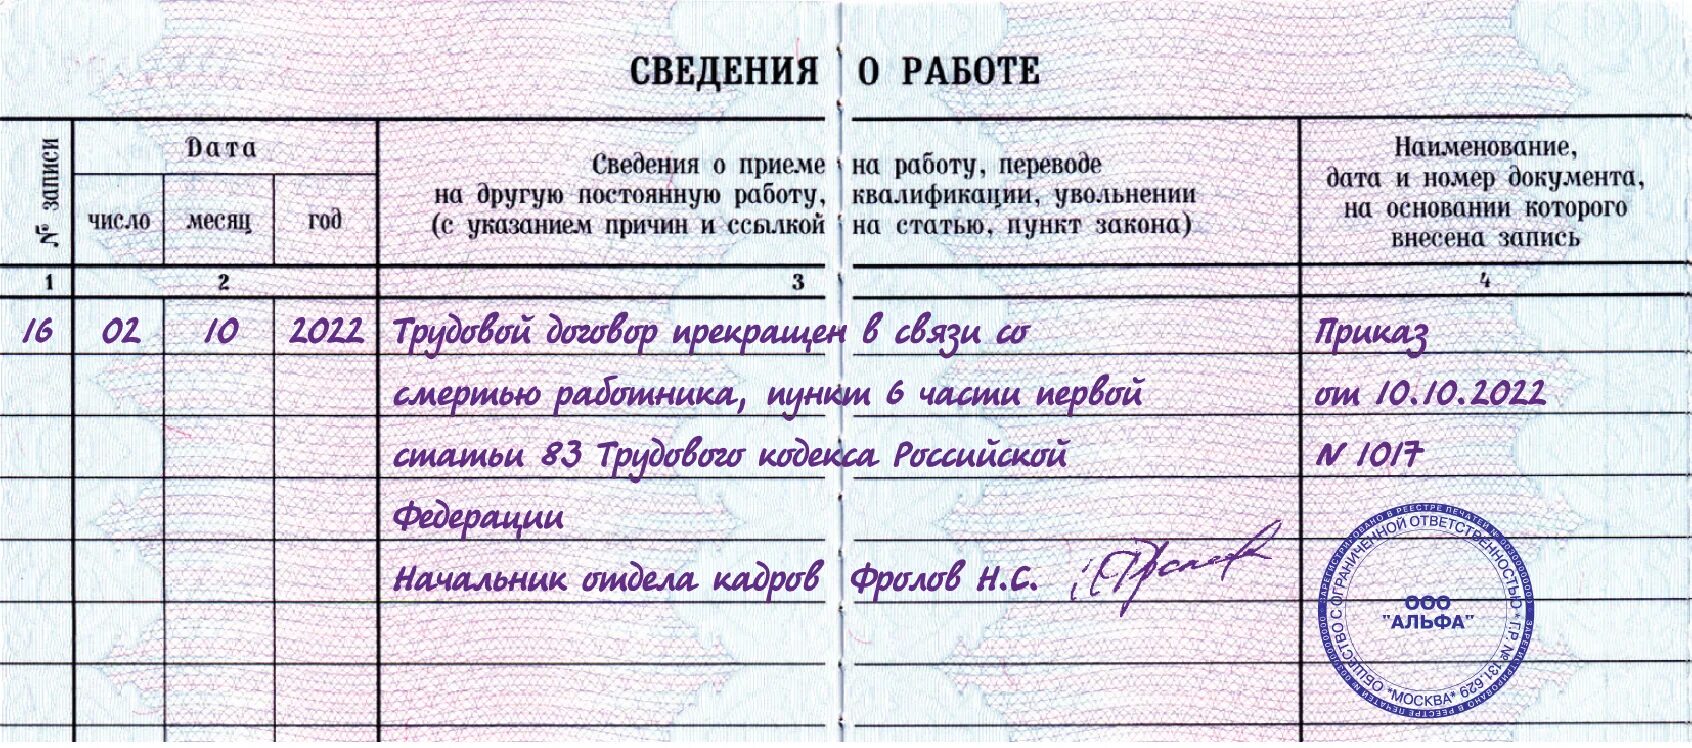 СВЕДЕНИЯ О РАБОТЕ
№ записи
Дата
число месяц год
Сведения о приеме на работу, переводе
на другую постоянную работу, квалификации, увольнении
(с указанием причин и ссылкой на статью, пункт закона)
Наименование,
дата и номер документа,
на основании которого
внесена запись
1 2 3 4
16 02 10 2022 Трудовой договор прекращен в связи со Приказ
смертью работника, пункт 6 части первой от 10.10.2022
статьи 83 Трудового кодекса Российской N 1017
Федерации
Начальник отдела кадров Фролов Н.С.
ОБЩЕСТВО С ОГРАНИЧЕННОЙ ОТВЕТСТВЕННОСТЬЮ * Г.Р. № 131.629 *МОСКВА*
ООО
"АЛЬФА"